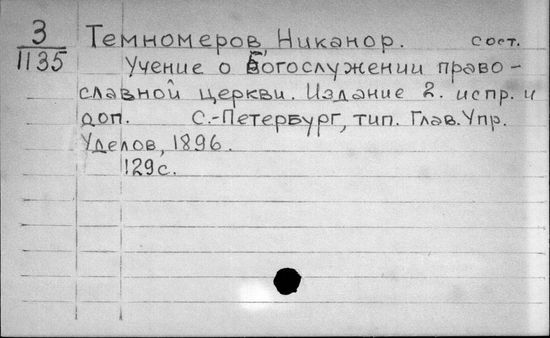 З
1135
Темномеров, Никанор. сост.
Учение о Богослужении право-
славной церкви. Издание 2. испр. и
доп. С.-Петербург, тип. Глав. Упр.
Уделов, 1896.
129 с.